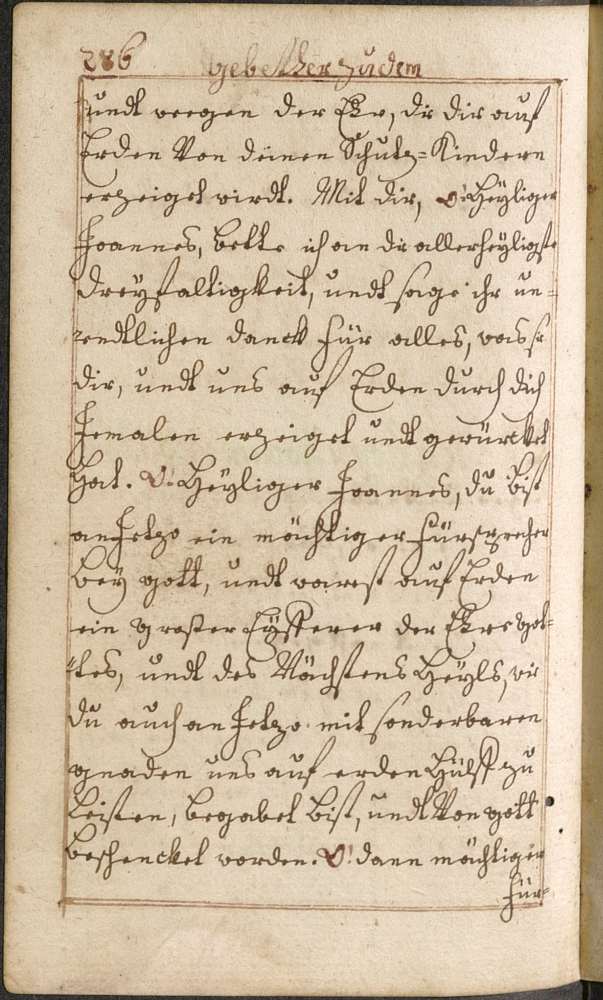 286 Gebetther zu dem
undt weegen der Ehr, die dir auf
Erden Von deinen Schutz=Kindern
erzeiget wirdt. Mit dir, O! Heyliger
Joannes, bette ich an die allerheyligste
Dreyfaltigkeit, undt sage ihr un=
endtlichen danck für alles, was sie
dir, undt uns auf Erden durch dich
Jemalen erzeiget undt gewürcket
Hat. O! Heyliger Joannes, du bist
an Jetzo ein mächtiger Fürsprecher
bey gott, undt warest auf Erden
ein großer Eyfferer der Ehre got=
tes, undt des Nächstens Heyls, wie
du auch an Jetzo mit sonderbaren
gnaden uns auf erden Hülff zu
Leisten, begabet bist, undt Von gott
beschencket worden. O! dann mächtiger
Für=